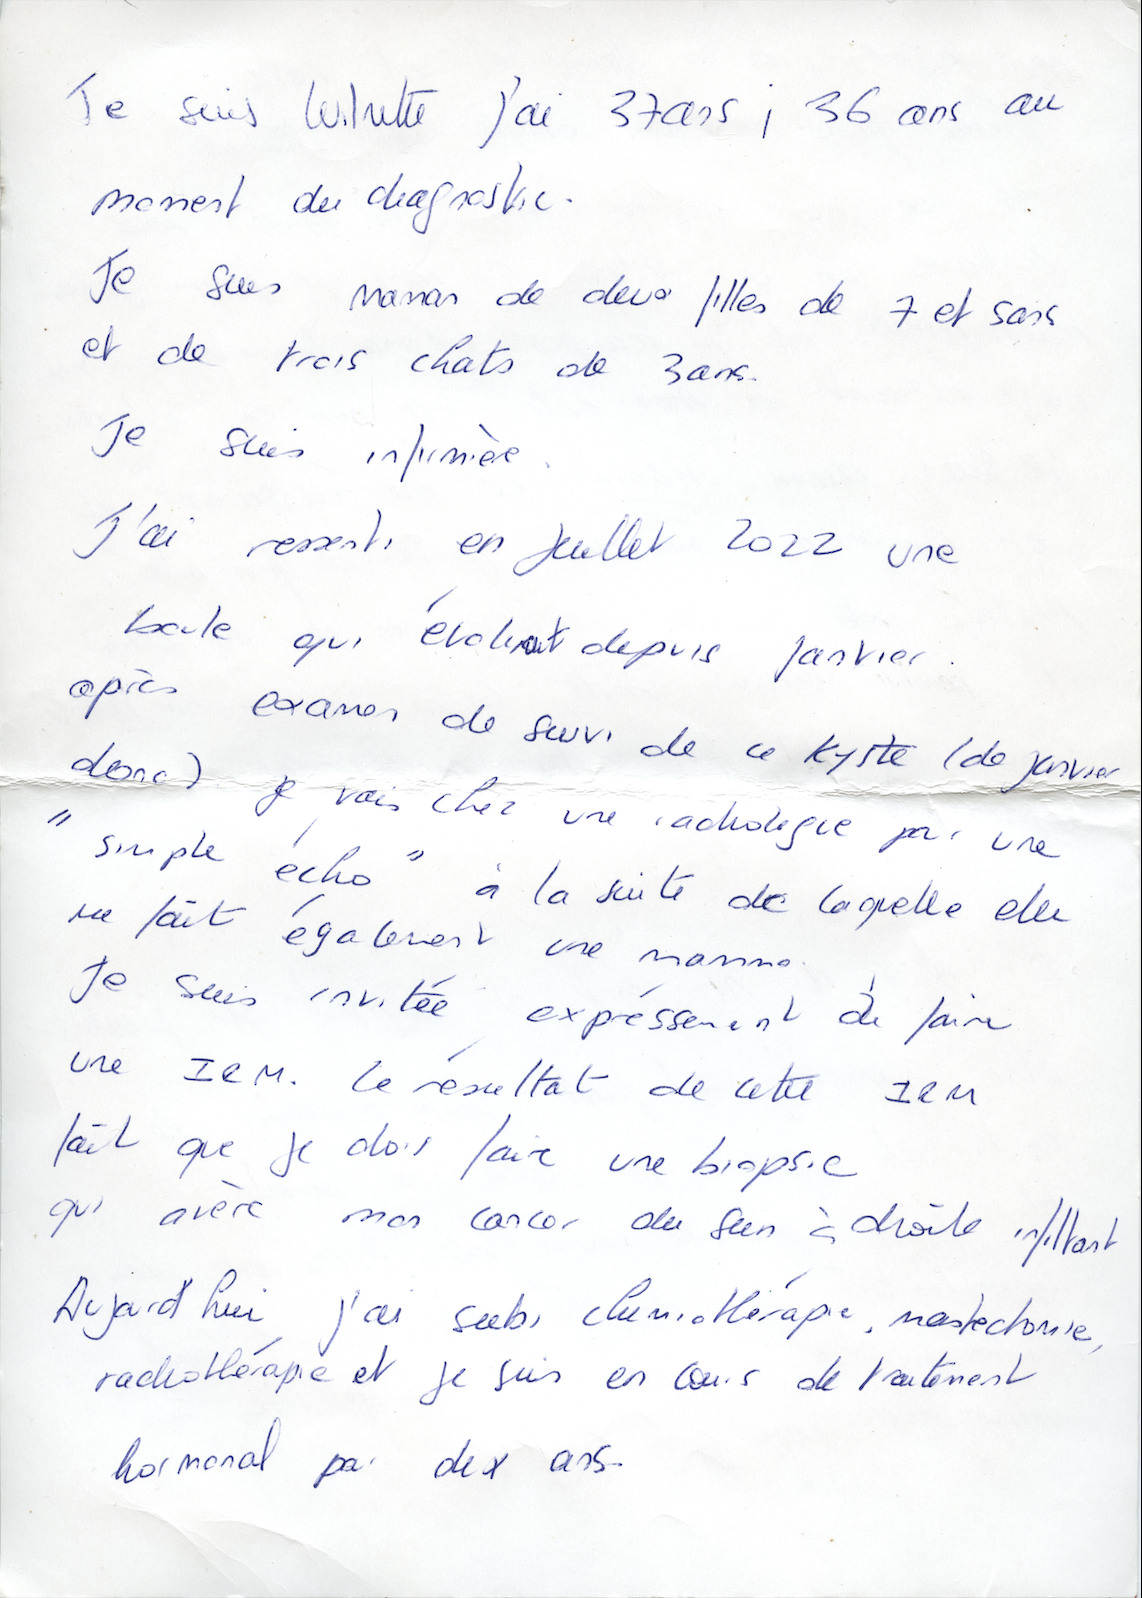 Je suis j'ai 37ans, 36 ans au
moment du diagnostic.
Je suis maman de deux filles de 7 et 5ans
et de trois chats de 3ans.
Je suis infirmière.
J'ai ressenti en juillet 2022 une
boule qui évoluait depuis janvier.
après examen de suivi de ce kyste (de janvier
donc) je vais chez une radiologue pour une
"simple écho" à la suite de laquelle elle
me fait également une mammo.
Je suis invitée expréssement à faire
une IRM. Le résultat de cette IRM
fait que je dois faire une biopsie
qui avère mon cancer du sein à droite infiltrant
Aujourd'hui j'ai subi chimiothérapie, mastectomie,
radiothérapie et je suis en cours de traitement
hormonal pour dix ans.